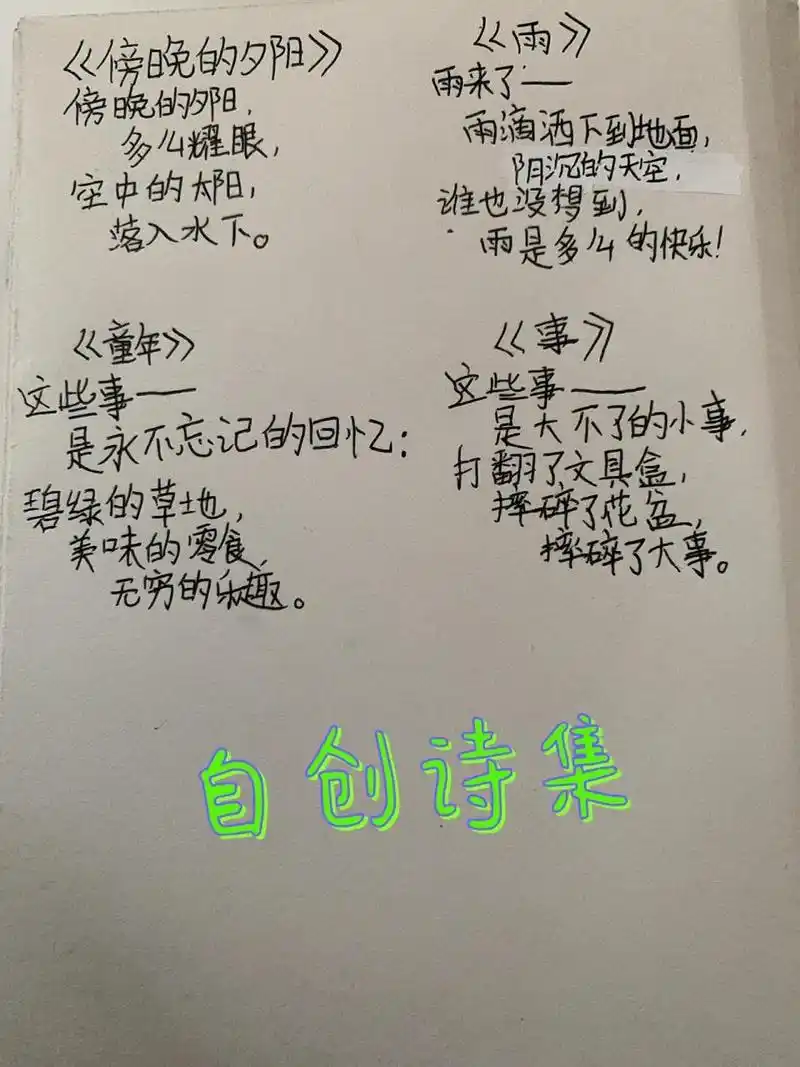 《傍晚的夕阳》
傍晚的夕阳，
多么耀眼，
空中的太阳，
落入水下。
《雨》
雨来了——
雨滴洒下到地面，
阴沉的天空，
谁也没想到，
雨是多么的快乐！
《童年》
这些事——
是永不忘记的回忆：
碧绿的草地，
美味的零食，
无穷的乐趣。
《事》
这些事——
是大不了的小事，
打翻了文具盒，
摔碎了花盆，
摔碎了大事。
自创诗集